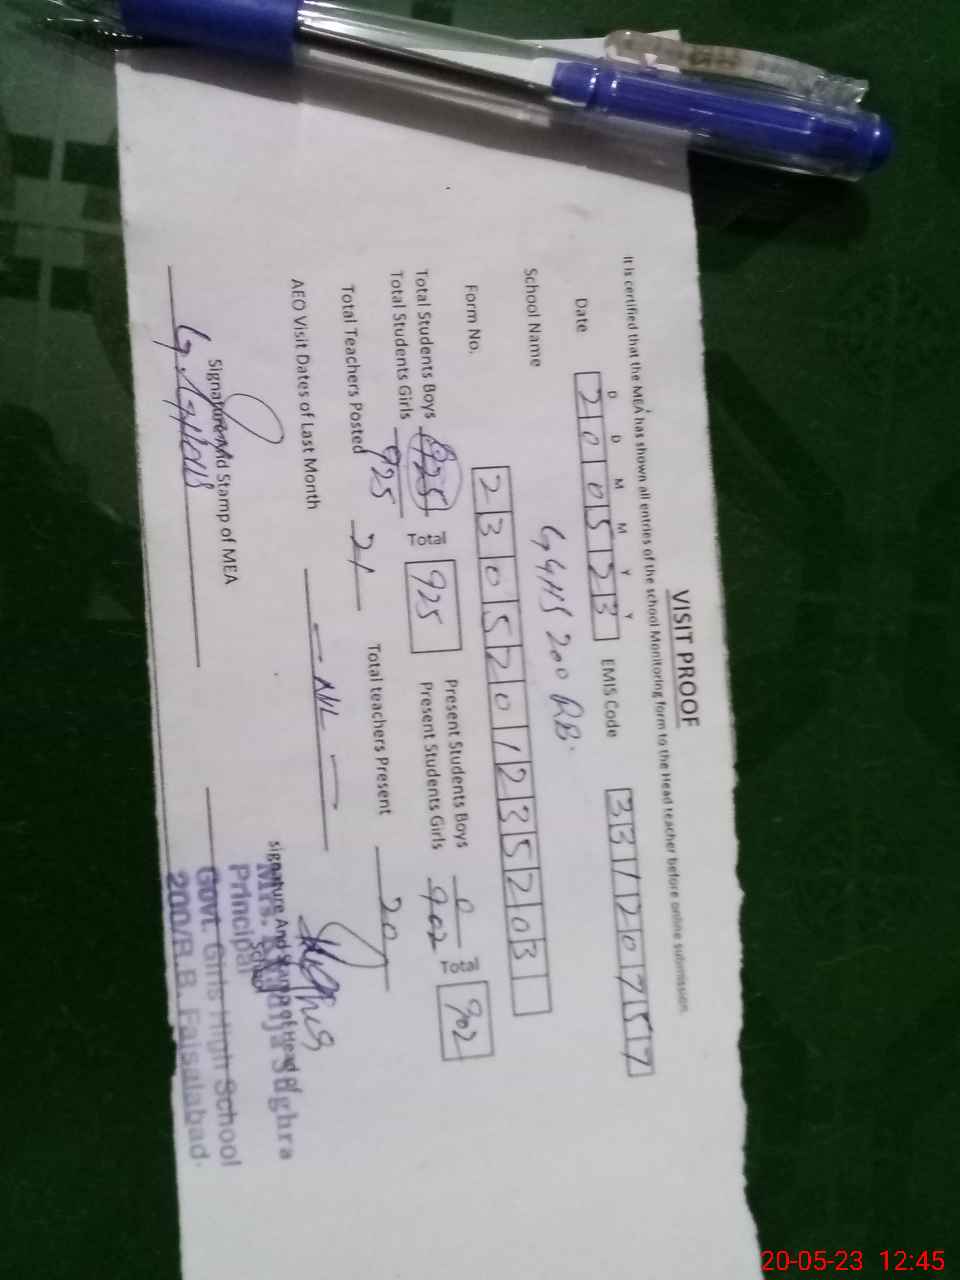 VISIT PROOF
It is certified that the MEA has shown all entries of the school Monitoring form to the Head teacher before online submission.
D D M M Y Y
Date 200523 EMIS Code 33120757
School Name GGHS 200 RB.
Form No. 2305201235203
Total Students Boys 925 Total 925 Present Students Boys 0 902
Total Students Girls 925 Present Students Girls 902 To
Total Teachers Posted 21 Total teachers Present 20
AEO Visit Dates of Last Month — NIL —
Signature And Stamp of MEA
signature And Stamp of Head of School
Mrs. Sughra
Principal
Govt. Girls High School
200/R.B. Faisalabad.
20-05-23 12:45